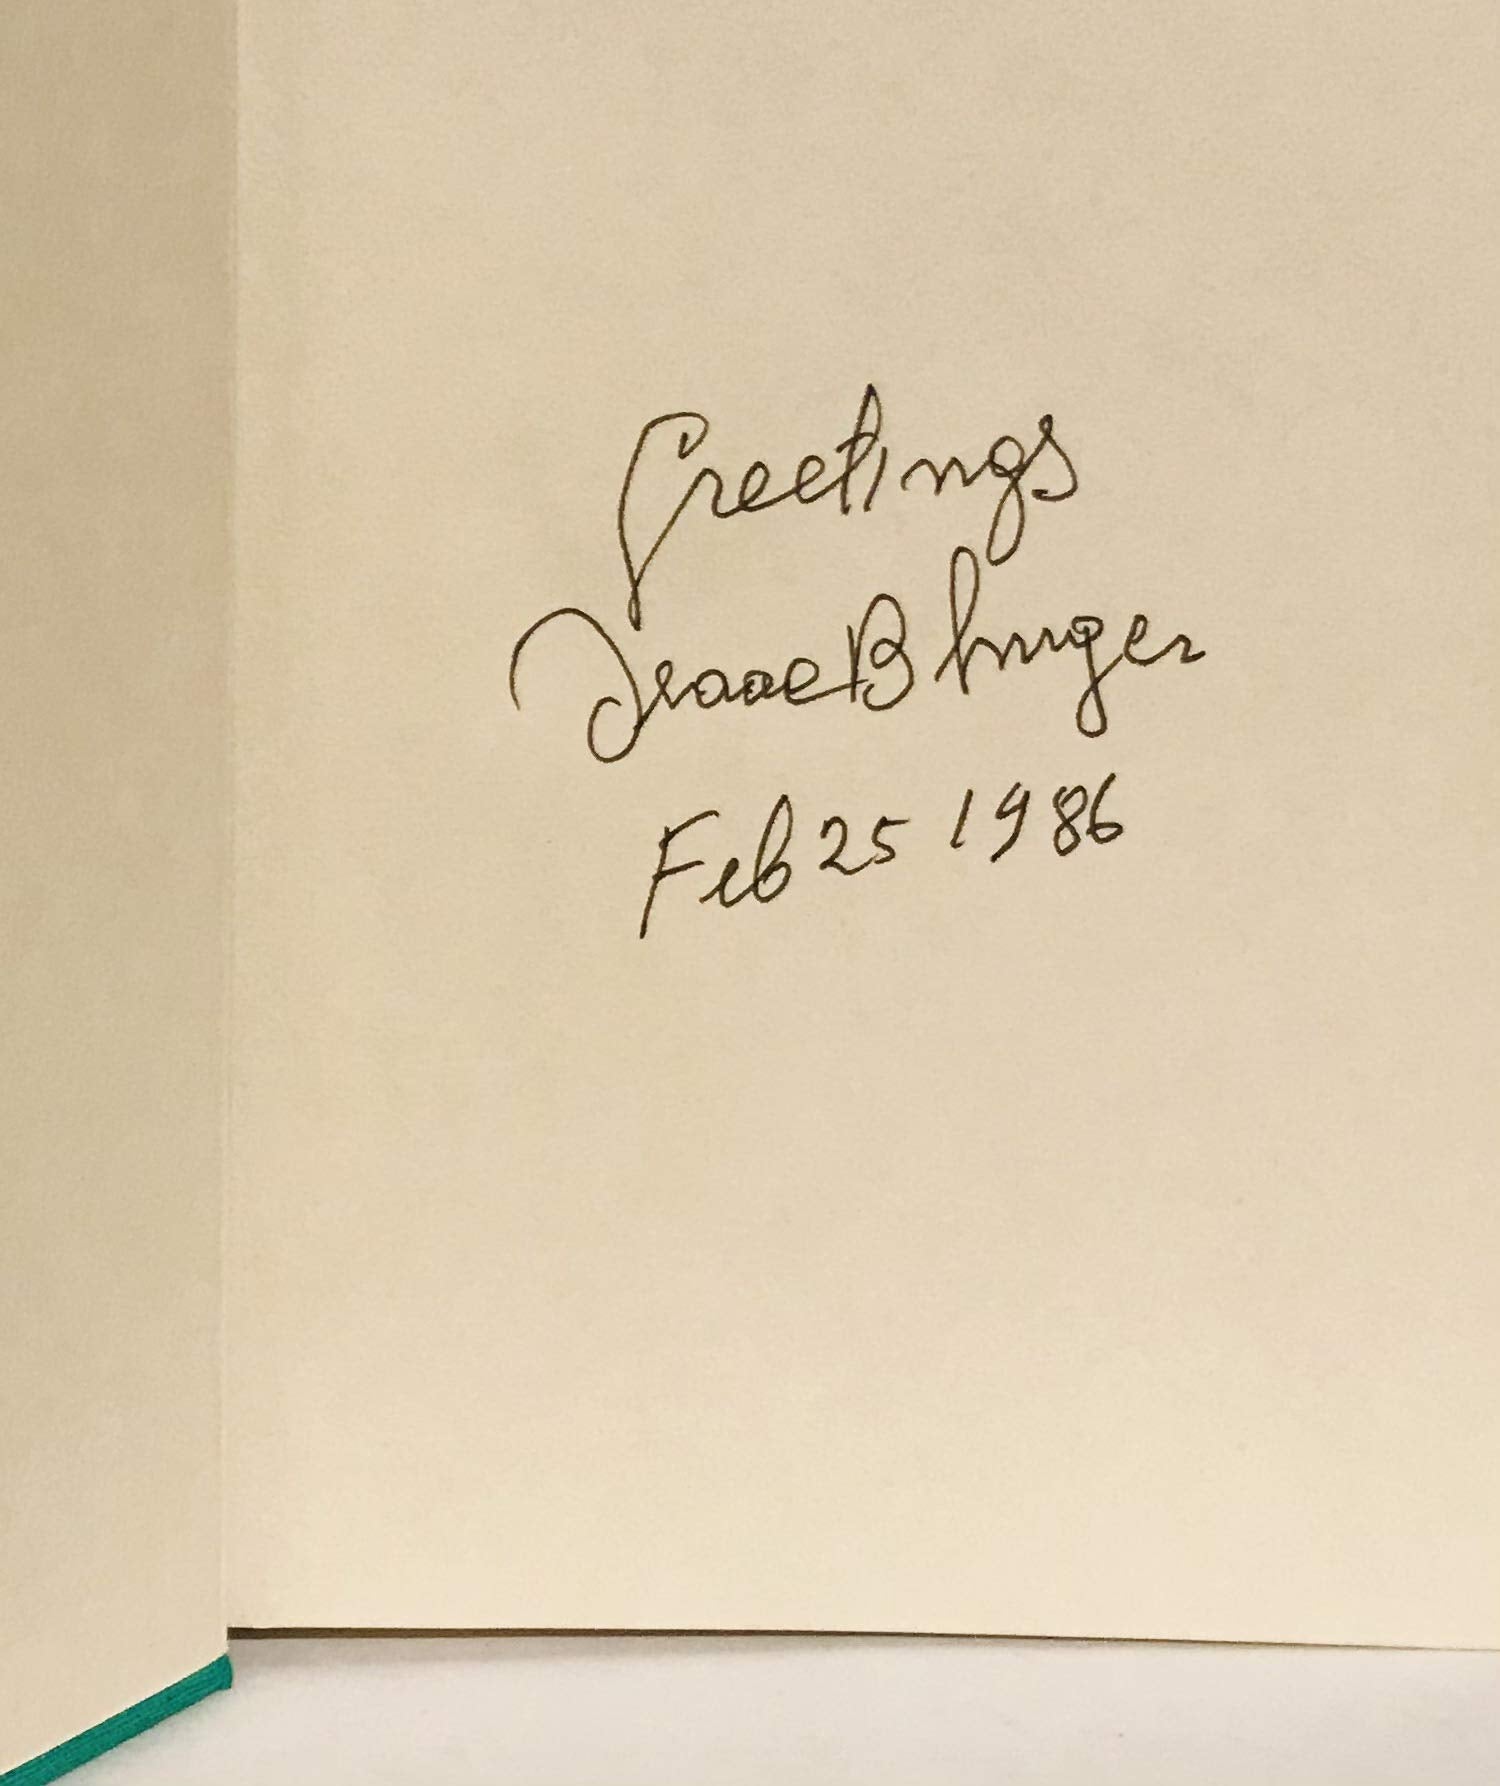 Greetings
Isaac B Singer
Feb 25 1986